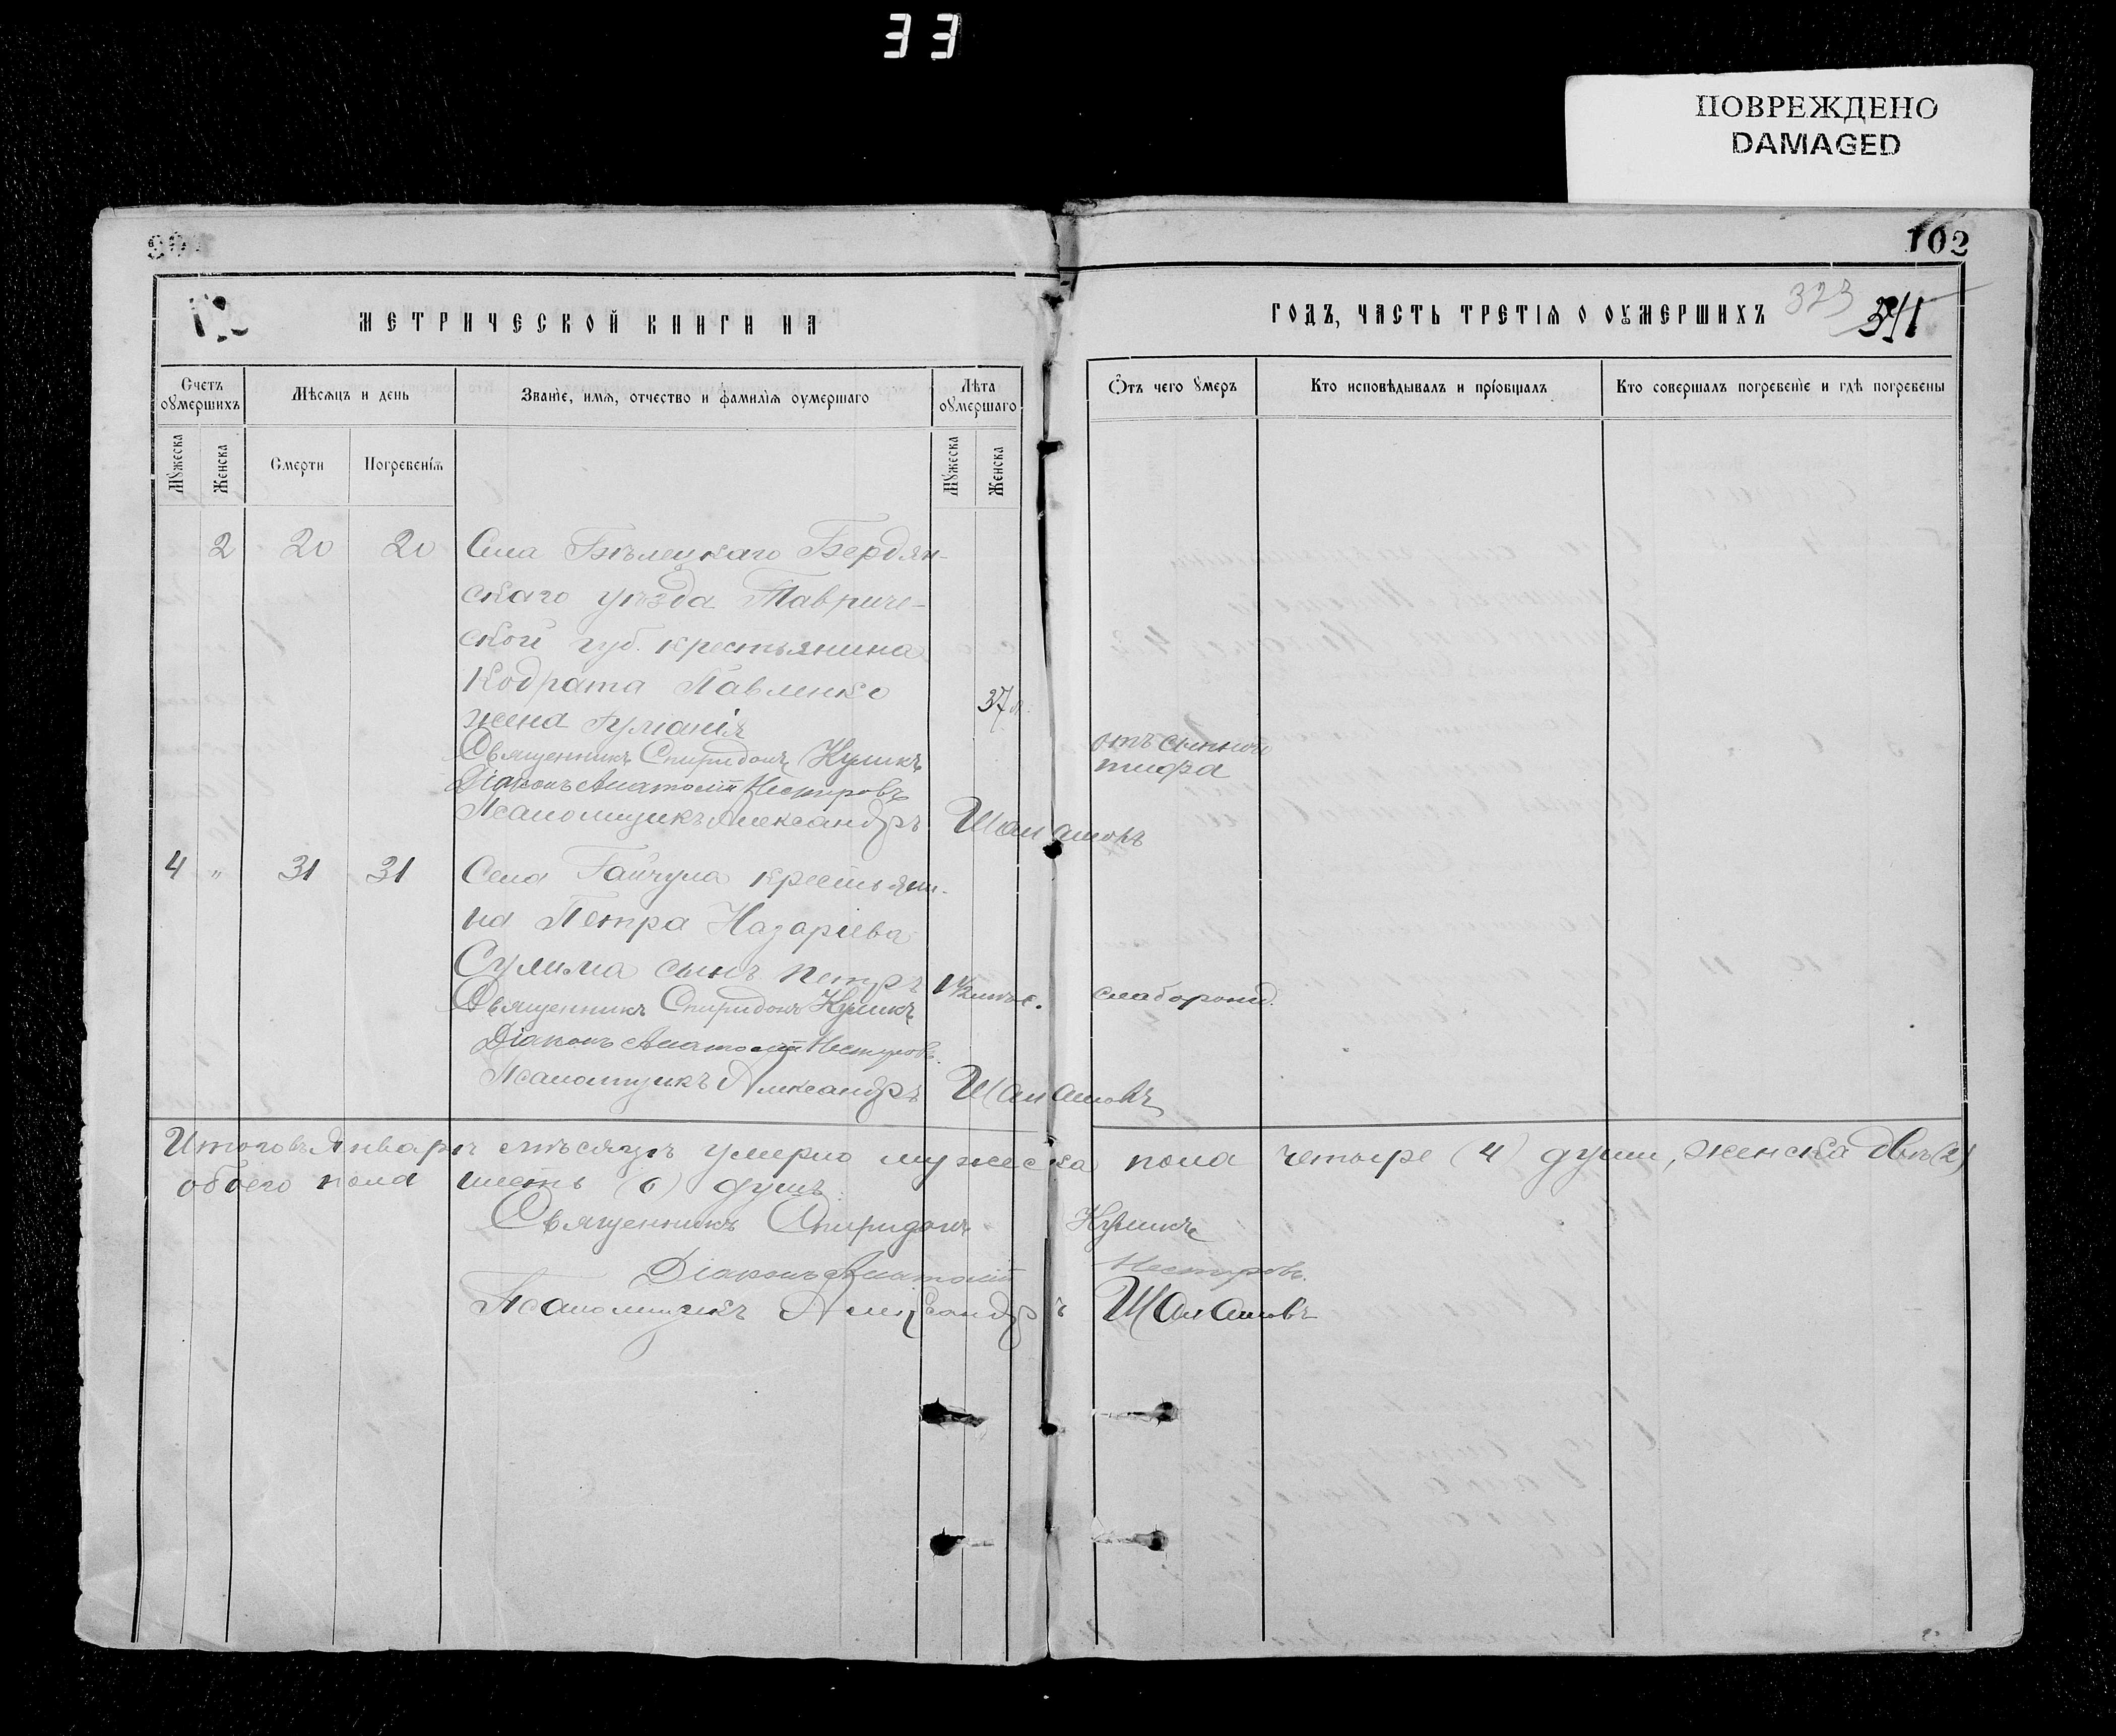 33
ПОВРЕЖДЕНО
DAMAGED
102
МЕТРИЧЕСКОЙ КНИГИ НА
ГОДЪ, ЧАСТЬ ТРЕТІЯ О ОУМЕРШИХЪ
323
341
Счетъ оумершихъ
Мѣсяцъ и день
Званіе, имя, отчество и фамилія оумершаго
Лѣта оумершаго
Отъ чего умеръ
Кто исповѣдывалъ и пріобщалъ
Кто совершалъ погребеніе и гдѣ погребены
Мужеска
Женска
Смерти
Погребенія
Мужеска
Женска
2 20 20 Села Бѣлецкаго Бердян-
скаго уѣзда Тавриче-
ской губ. крестьянина
Кодрата Павленко
жена 37
Священникъ Спиридонъ Куликъ
отъ сыпной
Діаконъ Анатолій Нестеровъ
тифа
Псаломщикъ Александръ
4 " 31 31 Села Гайчула крестьяни-
на Петра Назаріева
Сулима сынъ Петръ 1 1/2 слаборожд.
Священникъ Спиридонъ Куликъ
Діаконъ Анатолій Нестеровъ
Псаломщикъ Александръ
Итого въ Январѣ мѣсяцѣ умерло мужеска пола четыре (4) души, женска двѣ (2)
обоего пола шесть (6) душъ.
Священникъ Спиридонъ Куликъ
Діаконъ Анатолій Нестеровъ
Псаломщикъ Александръ